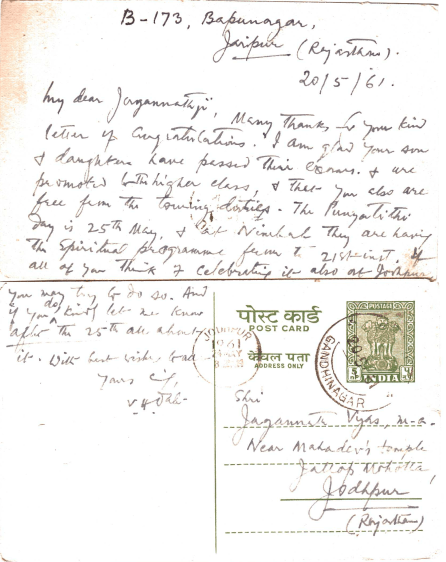 B-173, Bapunagar,
Jaipur (Rajasthan).
20/5/61.
My dear Jagannathji,
Many thanks for your kind
letter of Congratulations. I am glad your son
& daughters have passed their Exams. & are
promoted to the higher class, & that you also are
free from the touring duties. The Punyatithi
day is 25th May, & at Nimbal they are having
the Spiritual programme from 21st inst. If
all of you think of celebrating it also at Jodhpur
you may try to do so. And
if you do, kindly let me know
after the 25th all about
it. With best wishes
Yours
पोस्ट कार्ड
POST CARD
केवल पता
ADDRESS ONLY
JODHPUR
1961
POSTAGE
INDIA
GANDHINAGAR
Shri
Jagannath Vyas, M.A.
Near Mahadev's temple
Jodhpur
(Rajasthan)